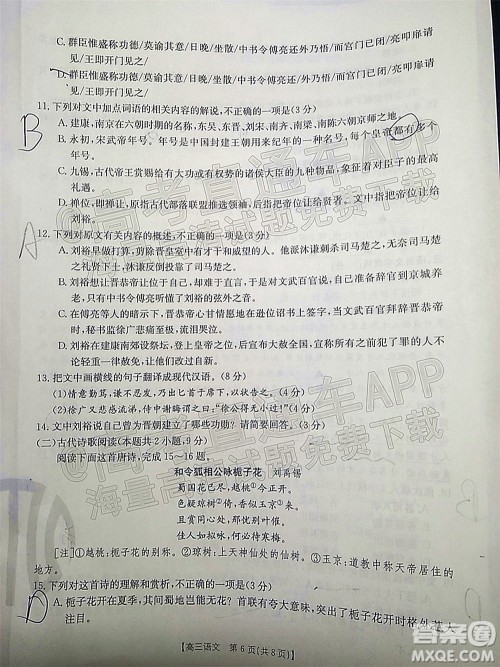 C. 群臣惟盛称功德/莫谕其意/日晚/坐散/中书令傅亮还外乃悟/而宫门已闭/亮叩扉请
见/王即开门见之/
D. 群臣惟盛称功德/莫谕其意/日晚/坐散/中书令傅亮还/外乃悟/而宫门已闭/亮叩扉请
见/王即开门见之/
11. 下列对文中加点词语的相关内容的解说,不正确的一项是(3分)
B
A. 建康,南京在六朝时期的名称,东吴、东晋、刘宋、南齐、南梁、南陈六朝京师之地。
B. 永初,宋武帝年号。年号是中国封建王朝用来纪年的一种名号,每个皇帝都有多个
年号。
C. 九锡,古代帝王赏赐给有大功或有权势的诸侯大臣的九种物品,象征着对臣子的最高
礼遇。
D. 禅位,即禅让,原指古代部落联盟推选领袖的制度,文中指司马德文把帝位让给
刘裕。
12. 下列对原文有关内容的概述,不正确的一项是(3分)
A
A. 刘裕早做打算,剪除晋皇室中有才干和威望的人。他派沐谦刺杀司马楚之,无奈司马楚
之礼贤下士,沐谦反倒保护了司马楚之。
B. 刘裕想让晋恭帝禅位给自己,就示意文武百官说,自己想准备辞去官职回到京城养
老,只有中书令傅亮领悟了刘裕的言外之意。
C. 在傅亮等人的暗示下,晋恭帝心甘情愿地写下退位的诏书,当文武百官拜别晋恭帝
时,秘书监徐广悲痛至极,流泪哭泣。
D. 刘裕在建康南郊设坛祭天,登上皇帝的宝座,大赦天下,所有触犯当世罪行的人不
论轻重一律赦免,让其改过自新。
13. 把文中画横线的句子翻译成现代汉语。(8分)
(1)情意勤笃,谦不忍发,乃出匕首于席下,以状告之。(4分)
(2)徐广又悲感流涕,侍中谢晦谓之曰:“徐公得无小过!”(4分)
14. 文中刘裕说自己曾为晋朝建立了哪些功绩?请简要回答。(3分)
(二)古代诗歌阅读(本题共2小题,9分)
阅读下面这首唐诗,完成15~16题。
和令狐相公咏栀子花 刘禹锡
蜀国花已尽,越桃①今正开。
色疑琼树②倚,香似玉京③来。
且赏同心处,那忧别叶催。
佳人如拟咏,何必待寒梅。
[注]①越桃:栀子花的别称。②琼树:上天神仙处的仙树。③玉京:道教中称天帝居住的
地方。
15. 下列对这首诗的理解和赏析,不正确的一项是(3分)
D
A. 栀子花开在夏季,其间蜀地岂能无花?首联有夸大意味,突出了栀子花开时格外
注目。
【高三语文 第6页(共8页)】
@高考直通车APP
海量高清试题免费下载
答案圈